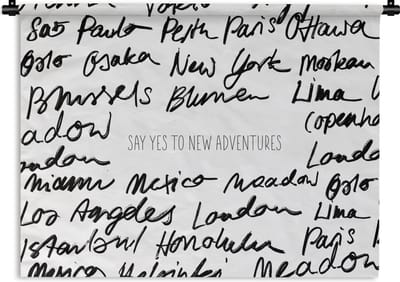 Tokio
Sao Paulo Perth Paris Ottawa
Oslo Osaka New York Moskau
Brussels Blumen Lima
adow Copenha
SAY YES TO NEW ADVENTURES
ondon Londo
Miami Mexico Meadow Oslo
Los Angeles London Lima
Istanbul Honolulu Paris
Mexico Helsinki Meadow